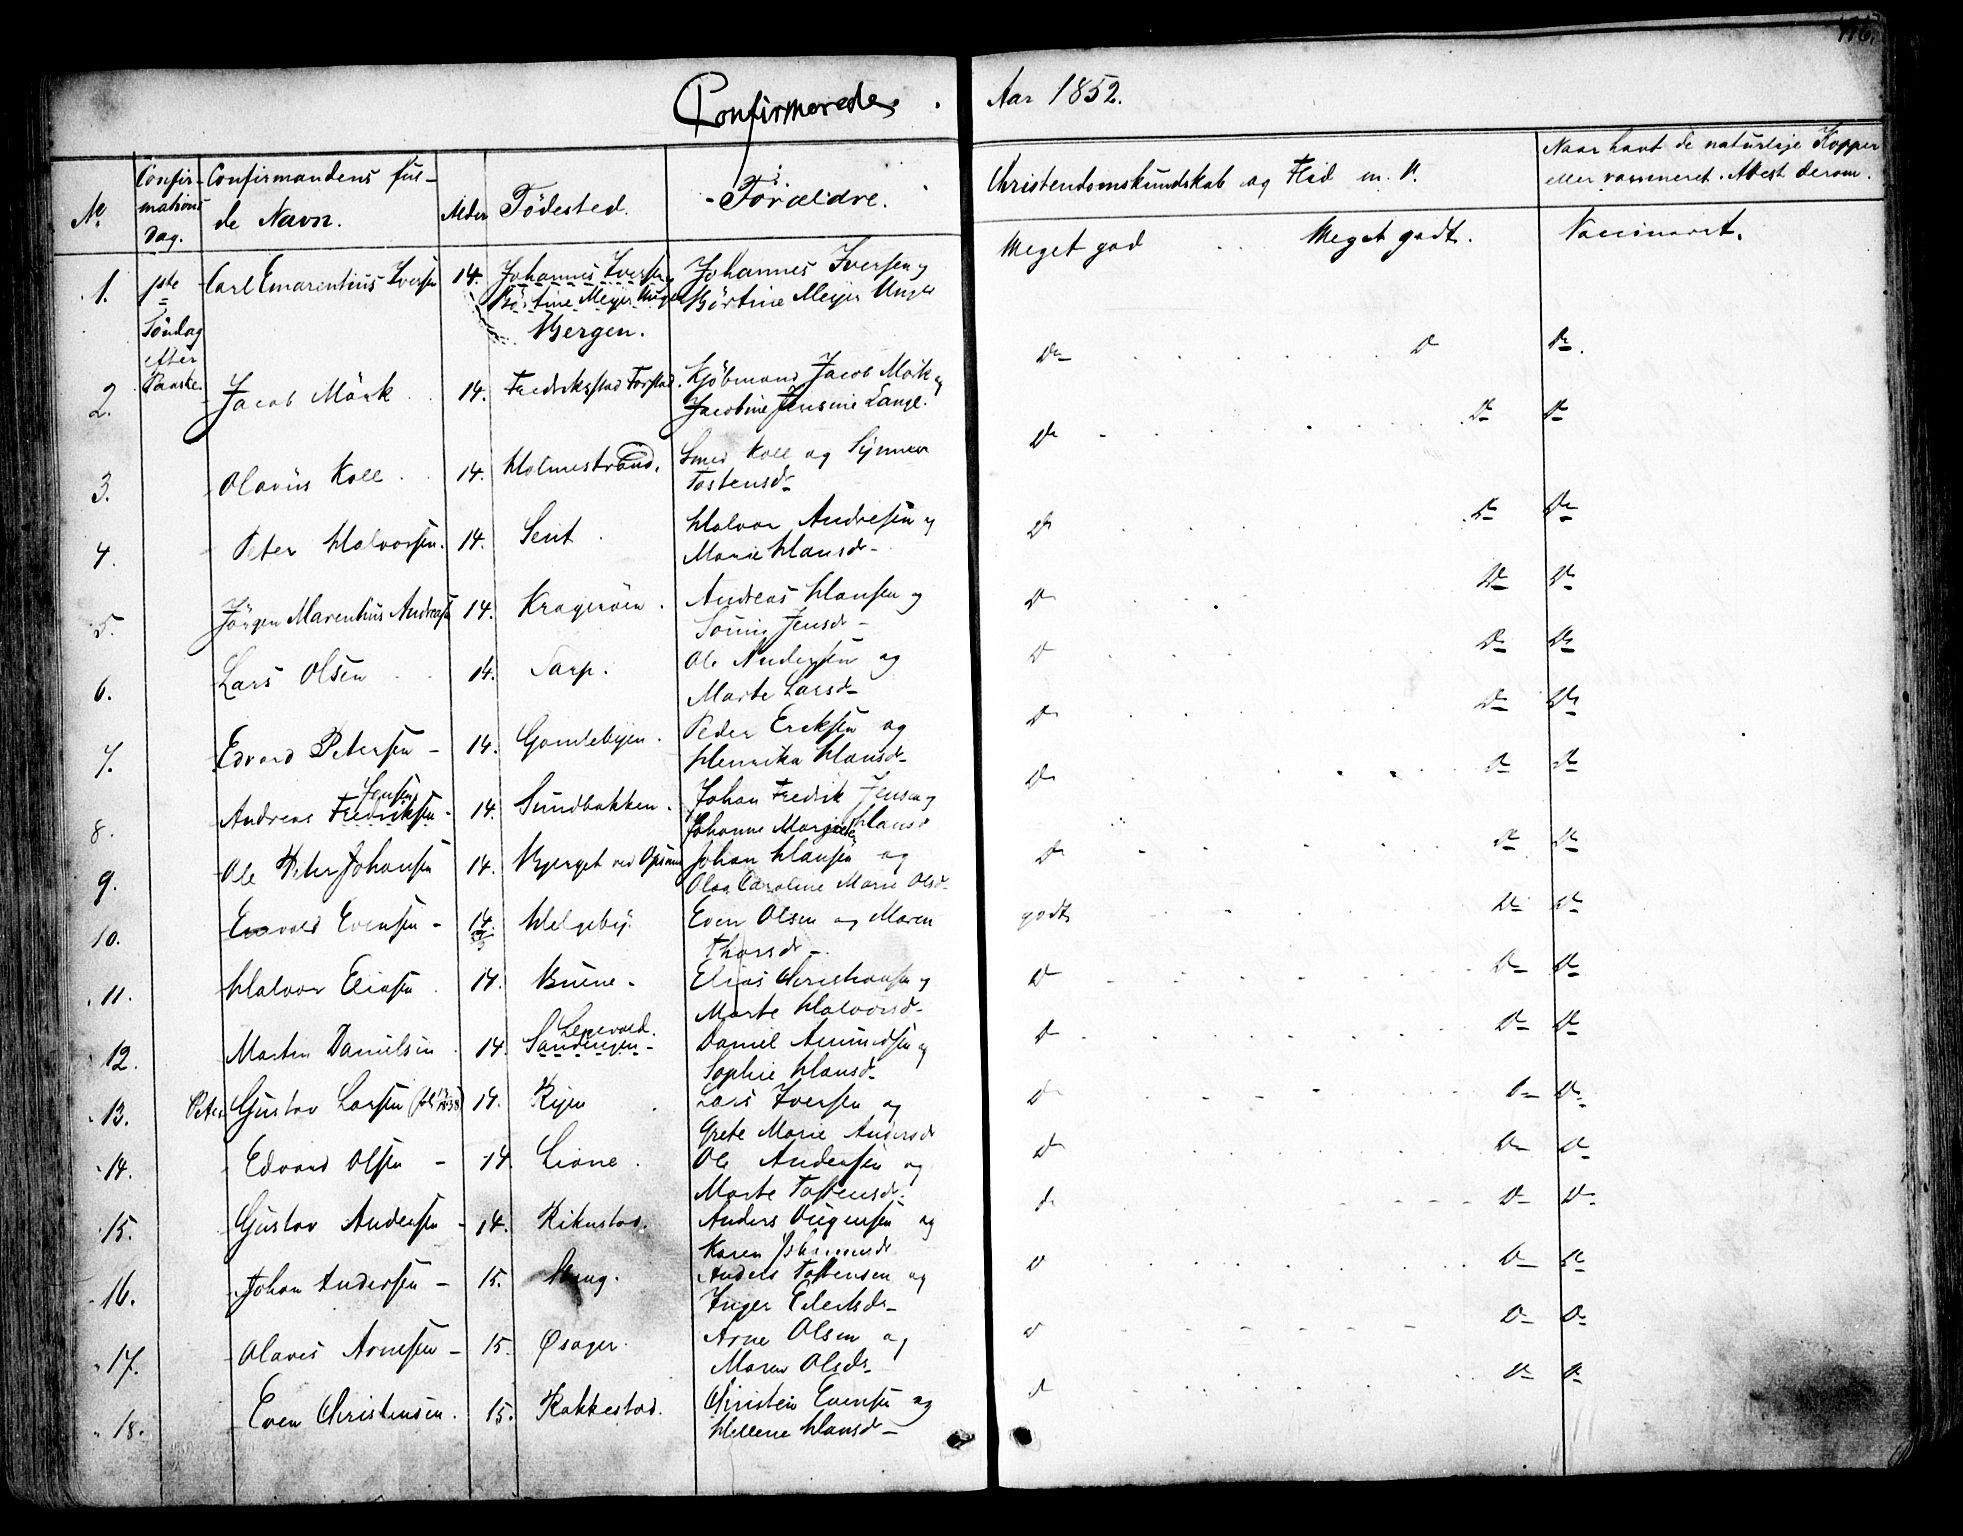 116.
Confirmerede
Aar 1852.
No
Confirmations Dag.
Confirmandens fulde Navn.
Alder
Födested.
Forældre.
Christendomskundskab og Flid m. V.
Naar havt de naturlige Kopper
eller vaccineret. Attest derom.
1. 1ste Söndag efter Paaske. Carl Emarentius Iversen 14. Johannes Iversen
Bergen.
Johannes Iversen og
Börtine Meyer Unger
Meget god Meget godt. Vaccineret.
2. Jacob Mörk 14. Fredrikstad Forstad. Kjöbmand Jacob Mörk og
Jacobine Jensine Lange.
Do D Do
3. Olavus Koll 14. Holmestrand. Smed Koll og
Tostensdr
Do Do Do
4. Peter Halvorsen. 14. Halvor Andresen og
Marie Hansdr
Do Do Do
5. Jörgen Marentius Andreasen 14. Krageröen. Andreas Hansen og
Jensdr
Do Do Do
6. Lars Olsen 14. Sarp. Ole Andersen og
Marte Larsdr
Do Do Do
7. Edvard Petersen 14. Gamlebyen. Peder Eriksen og
Henrika Hansdr
Do Do Do
8. Andreas Fredriksen Jensen 14. Sundbakken. Johan Fredrik Jensen og
Johanne Margrete Hansd
Do Do Do
9. Ole Peter Johansen 14. Bjerget ved Opsund Johan Hansen og
Olea Caroline Marie Olsdr
Do Do Do
10. Evensen 14. Helgeby. Even Olsen og Maren
Thorsdr
godt Do Do
11. Halvor Eliasen 14. Elias Christiansen og
Marte Halvorsdr
Do Do Do
12. Martin Danielsen 14. Daniel Amundsen og
Sophie Hansdr
Do Do Do
13. Peter Gustav Larsen 14. Lars Iversen og
Grete Marie Andersdr
Do Do Do
14. Edvard Olsen 14. Lione. Ole Andersen og
Marte Tostensdr
Do Do Do
15. Gustav Andersen 14. Kiknstad. Anders og
Karen
Do Do Do
16. Johan Andersen 15. Anders Tostensen og
Inger
Do Do Do
17. Olaves Arnesen 15. Øsager. Arne Olsen og
Maren Olsdr
Do Do Do
18. Even Christensen. 15. Rakkestad. Christen Evensen og
Hellene Hansdr
Do Do Do